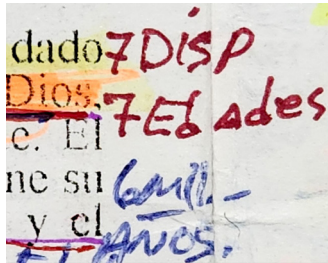 dado 7 DISP
Dios, 7 Edades
e. El
ne su 6 mil
y el AÑOS.